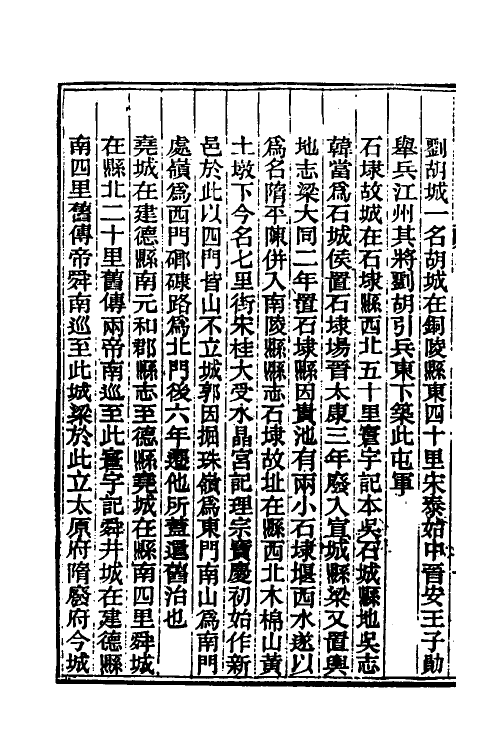 劉胡城一名胡城在銅陵縣東四十里宋泰始中晉安王子勛
舉兵江州其將劉胡引兵東下築此屯軍
石埭故城在石埭縣西北五十里寰宇記本吳石城縣地吳志
韓當爲石城侯置石埭場晉太康三年廢入宣城縣梁又置輿
地志梁大同二年置石埭縣因貴池有兩小石埭堰西水遂以
爲名隋平陳併入南陵縣縣志石埭故址在縣西北木棉山黃
土墩下今名七里街宋桂大受水晶宮記理宗寶慶初始作新
邑於此以四門皆山不立城郭因掘珠嶺爲東門南山爲南門
處嶺爲西門礤磏路爲北門後六年遷他所蓋還舊治也
堯城在建德縣南元和郡縣志至德縣堯城在縣南四里舜城
在縣北二十里舊傳兩帝南巡至此寰宇記舜井城在建德縣
南四里舊傳帝舜南巡至此城梁於此立太原府隋廢府今城